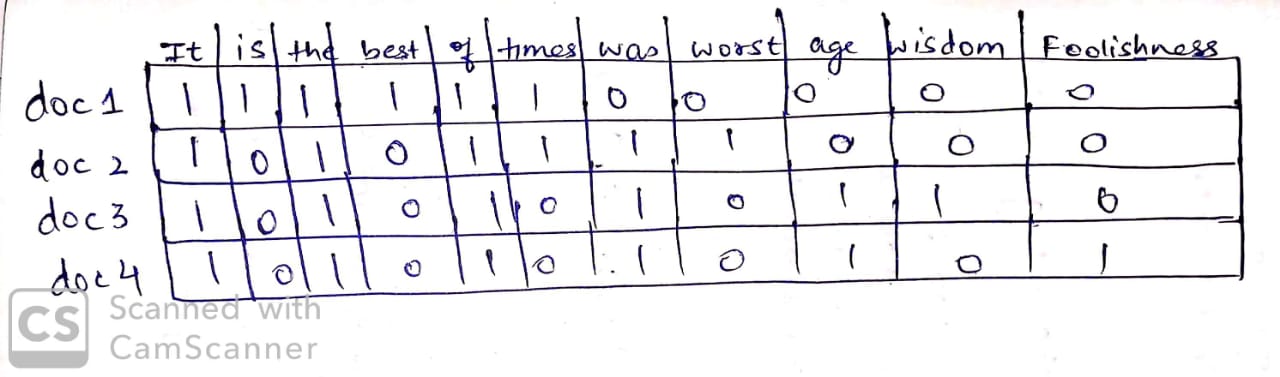 It is the best of times was worst age wisdom Foolishness
doc 1 1 1 1 1 1 1 0 0 0 0 0
doc 2 1 0 1 0 1 1 1 1 0 0 0
doc 3 1 0 1 0 1 0 1 0 1 1 0
doc 4 1 0 1 0 1 0 1 0 1 0 1
CS Scanned with
CamScanner